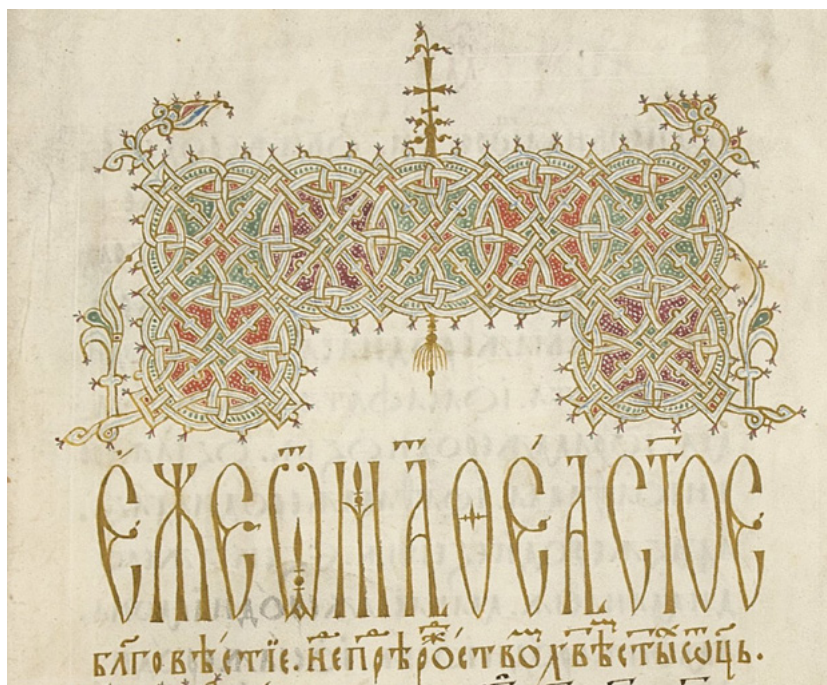 Є́ЖЕ Ѿ МАѲЕ́А СТ҃ОЕ
бл҃говѣ́стїе. неⷣ прѣⷣ роⷤ́ствоⷨ хв҃ѣⷨ ст҃ыⷯ ѿц҃ь.